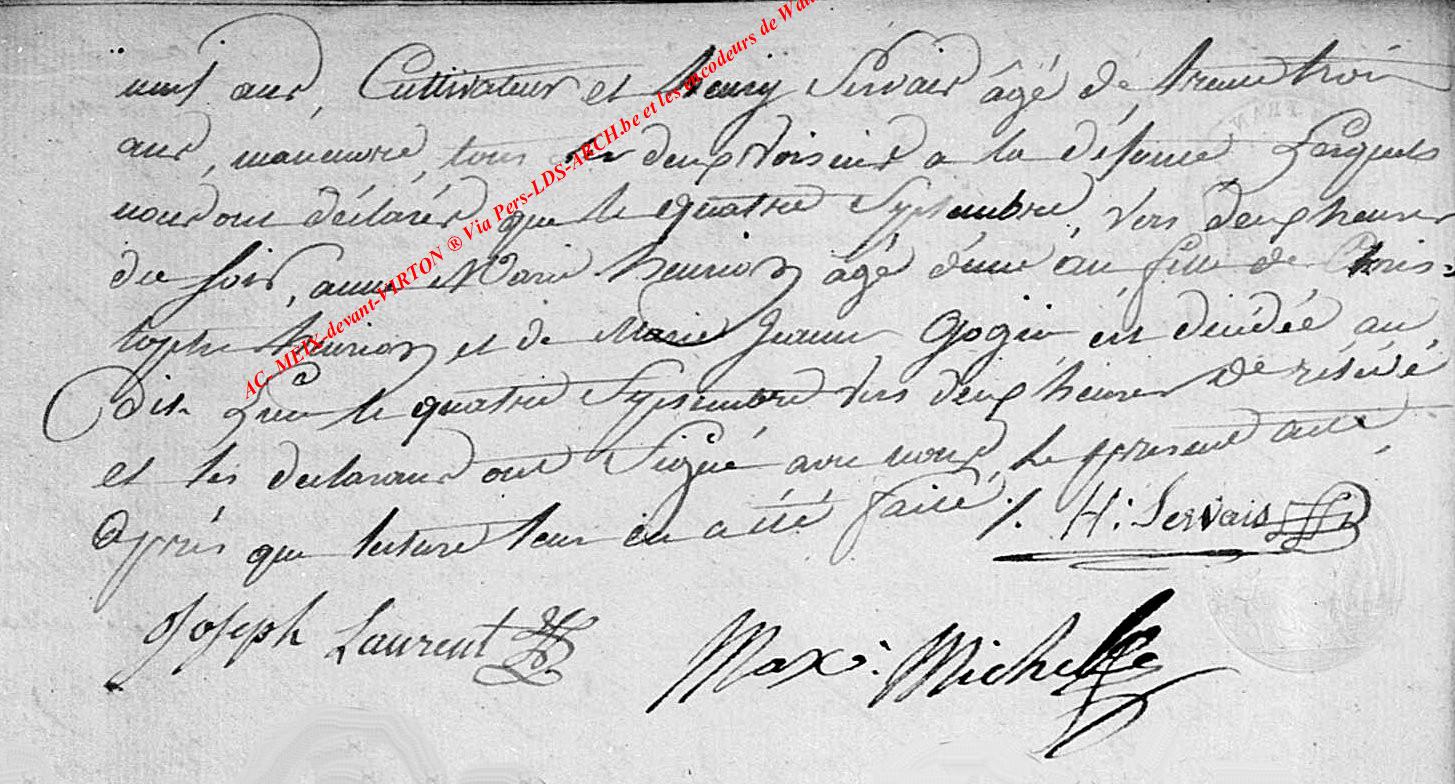 neuf ans, Cultivateur et henry Servais âgé de trente trois
ans, maneuvre, tous les deux Voisins a la défunte Lesquels
nous ont déclarés que le quatre Septembre, vers deux heures
du soir, anne Marie henrion âgé d'une an fille de Chris=
tophe henrion et de Marie Jeanne Gogin est décidée au
dit lieu le quatre Septembre vers deux heures de rélévé
et les declarans ont Signé avec nous, le present acte,
après que lecture leur en a été faite ;/. H: Servais
Joseph Laurent
Max: Michel
AC. MEIX-devant-VIRTON ® Via Pers-LDS-ARCH.be et les encodeurs de